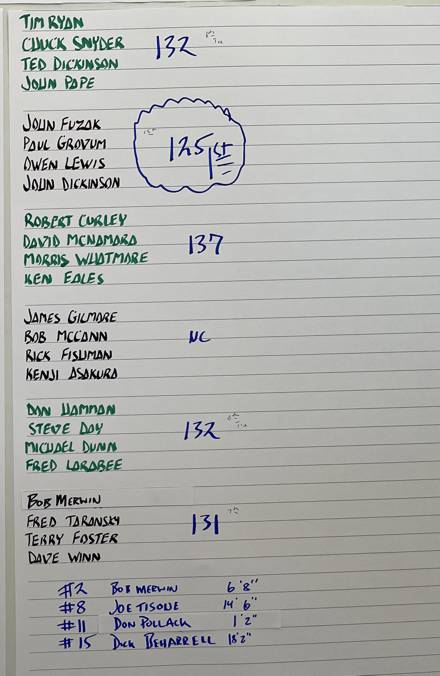 TIM RYAN
CHUCK SNYDER 132
TED DICKINSON
JOHN PAPE
JOHN FUZAK
PAUL GROVUM
OWEN LEWIS 125 1ST
JOHN DICKINSON
ROBERT CURLEY
DAVID MCNAMARA 137
MORRIS WHATMORE
KEN EALES
JAMES GILMORE
BOB MCCANN NC
RICK FISHMAN
KENJI ASAKURA
DAN HAMMAN
STEVE DAY 132
MICHAEL DUNN
FRED LARABEE
BOB MERWIN
FRED TARANSKY 131
TERRY FOSTER
DAVE WINN
#2 BOB MERWIN 6'8"
#8 JOE TISONE 14'6"
#11 DON POLLACK 1'2"
#15 DICK BEHARRELL 18'2"